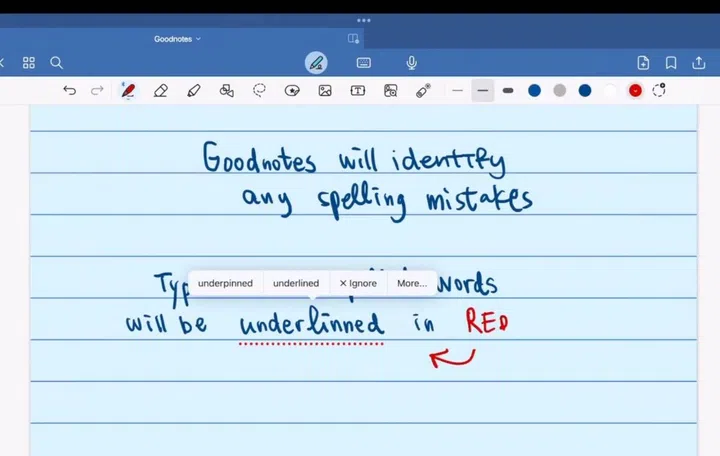 Goodnotes
Goodnotes will identify
any spelling mistakes
underpinned underlined × Ignore More...
Typ words
will be underlinned in RED